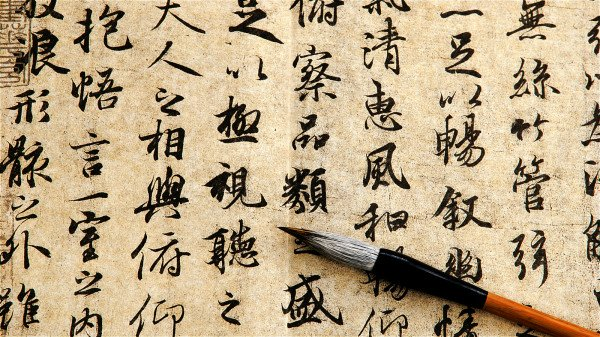 以為流
無絲竹管弦
足以暢叙幽情
氣清惠風和暢仰
俯察品類之盛
足以極視聽之
夫人之相與俯仰
抱悟言一室之內
放浪形骸之外雖